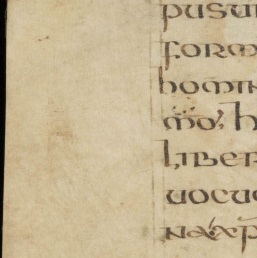 pusu
form
homin
mo; h
liber
uocu
na xp